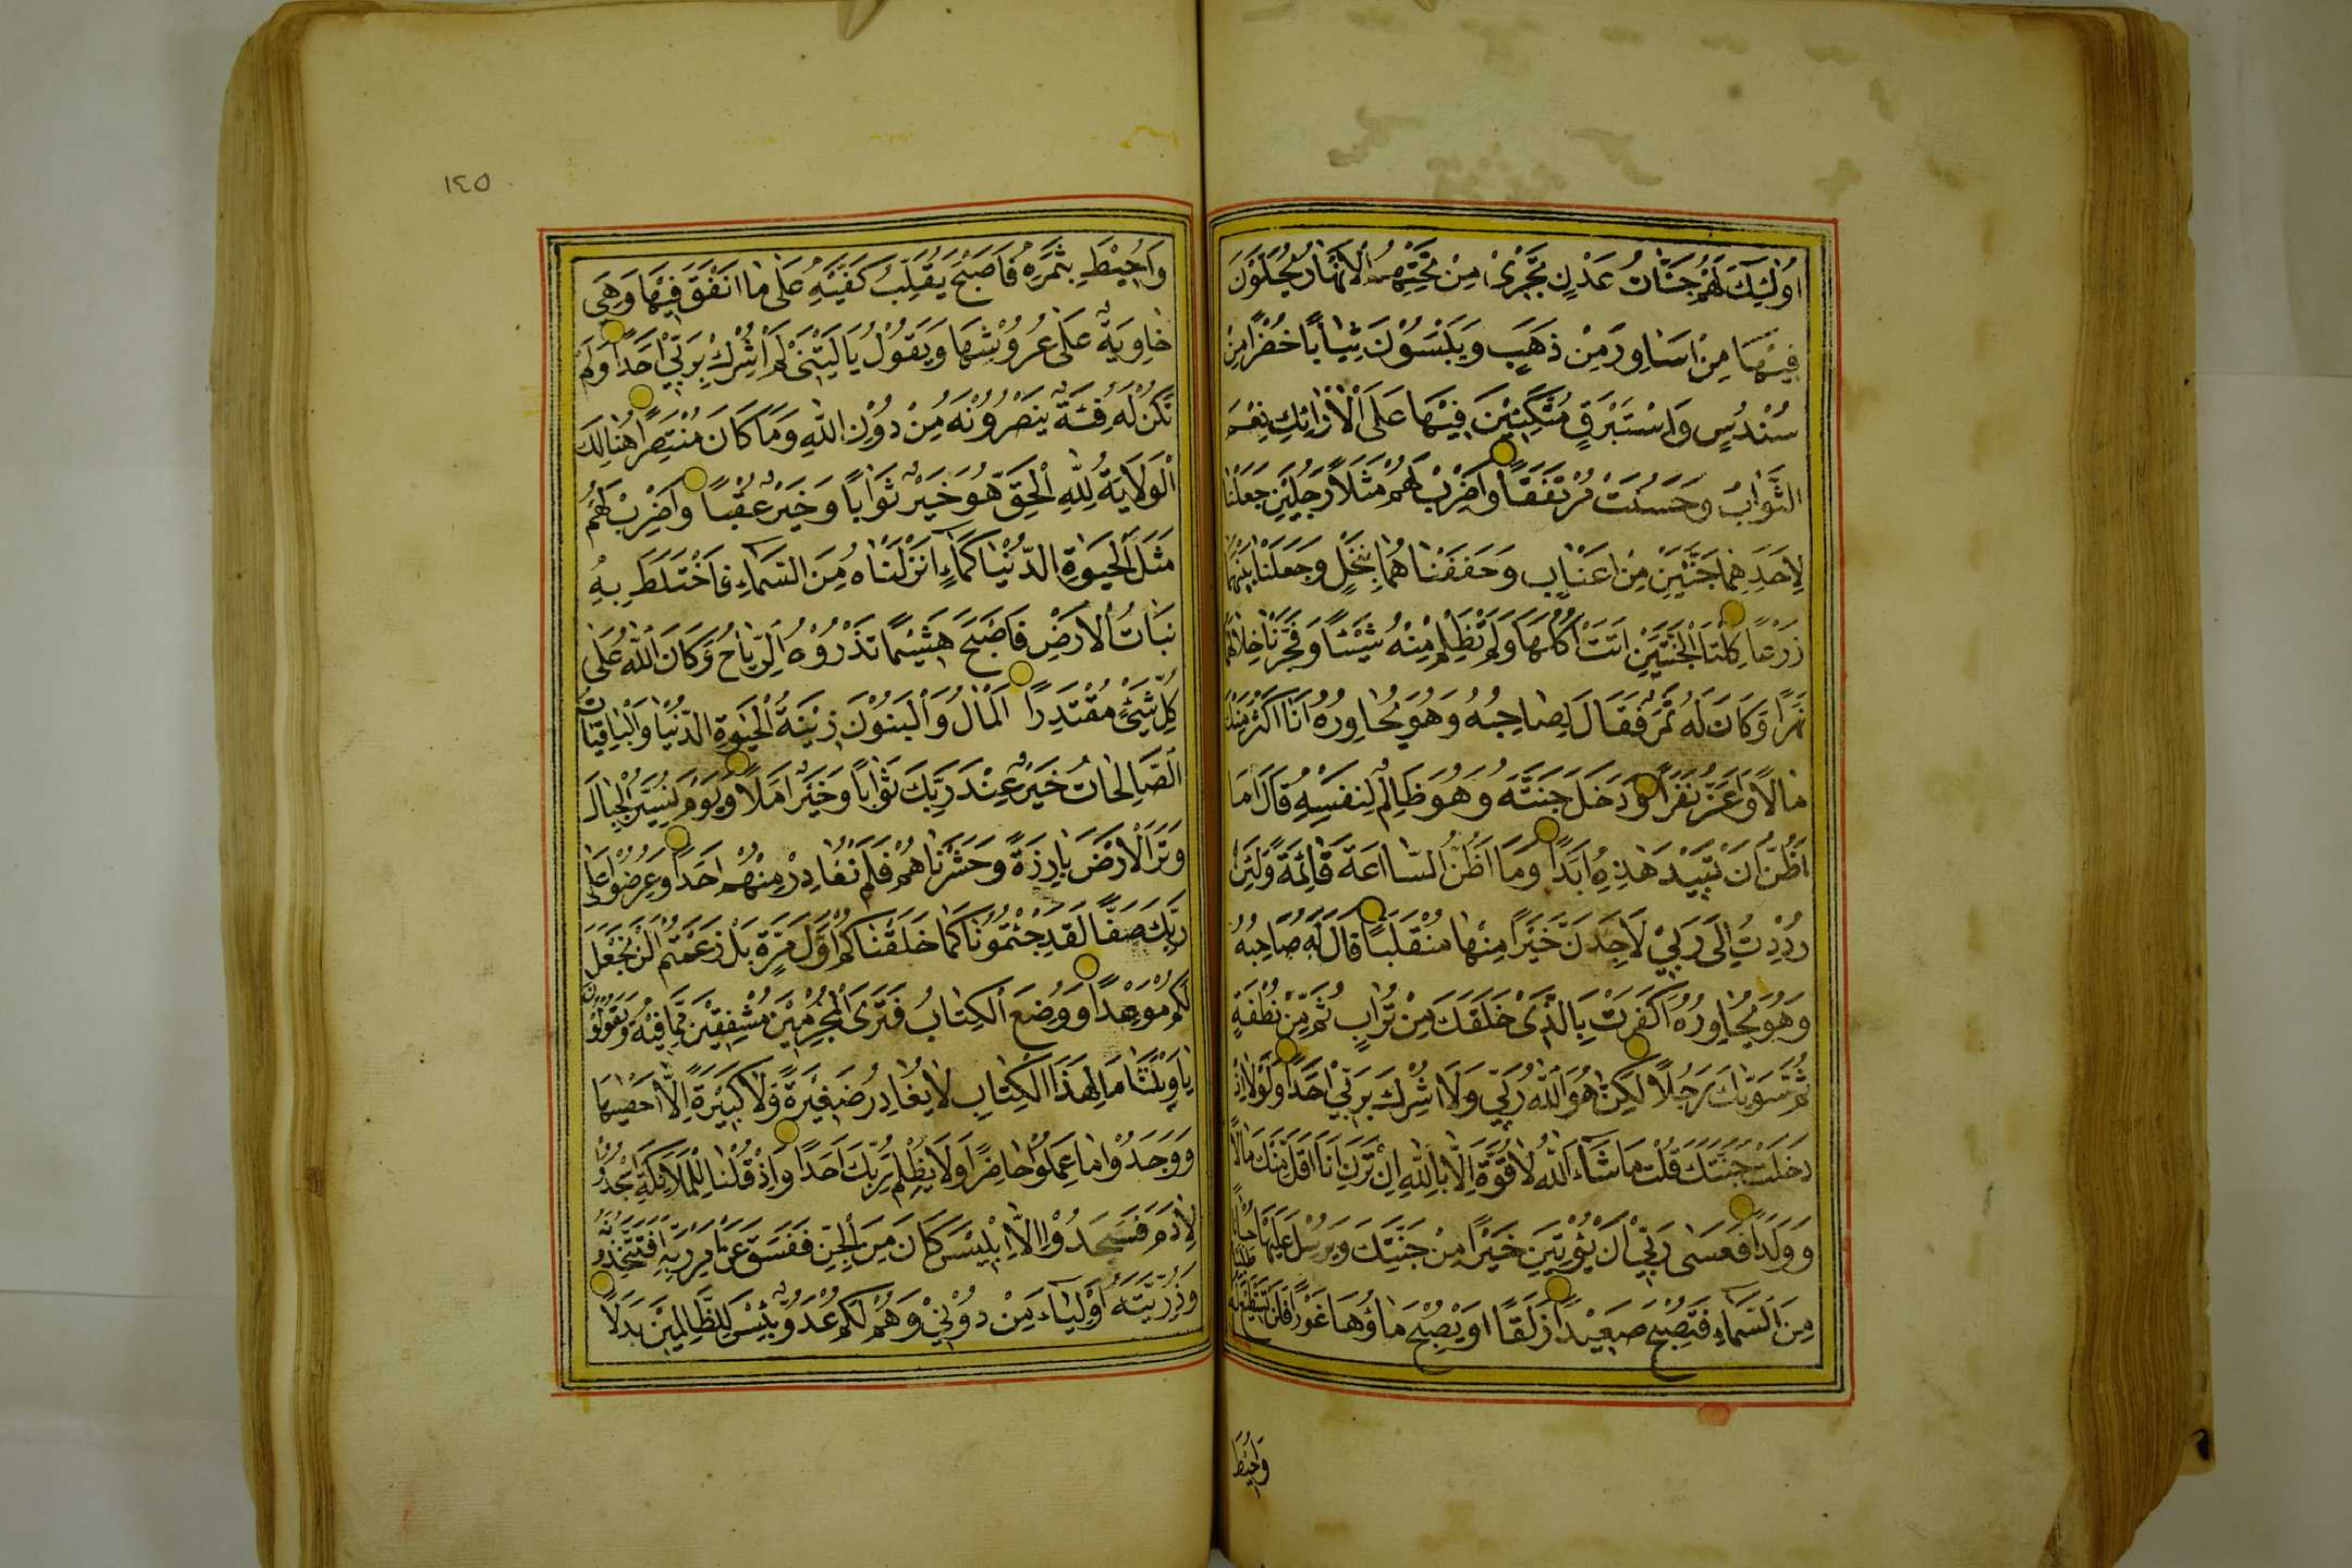 اُولٰئِكَ لَهُمْ جَنَّاتُ عَدْنٍ تَجْرٖى مِنْ تَحْتِهِمُ الْاَنْهَارُ يُحَلَّوْنَ
فِيْهَا مِنْ اَسَاوِرَ مِنْ ذَهَبٍ وَيَلْبَسُوْنَ ثِيَابًا خُضْرًا مِنْ
سُنْدُسٍ وَاِسْتَبْرَقٍ مُتَّكِئِيْنَ فِيْهَا عَلَى الْاَرَائِكِ نِعْمَ
الثَّوَابُ وَحَسُنَتْ مُرْتَفَقًا وَاضْرِبْ لَهُمْ مَثَلًا رَجُلَيْنِ جَعَلْنَا
لِاَحَدِهِمَا جَنَّتَيْنِ مِنْ اَعْنَابٍ وَحَفَفْنَاهُمَا بِنَخْلٍ وَجَعَلْنَا بَيْنَهُمَا
زَرْعًا كِلْتَا الْجَنَّتَيْنِ اٰتَتْ اُكُلَهَا وَلَمْ تَظْلِمْ مِنْهُ شَيْئًا وَفَجَّرْنَا خِلَالَهُمَا
نَهَرًا وَكَانَ لَهُ ثَمَرٌ فَقَالَ لِصَاحِبِهٖ وَهُوَ يُحَاوِرُهُ اَنَا اَكْثَرُ مِنْكَ
مَالًا وَاَعَزُّ نَفَرًا وَدَخَلَ جَنَّتَهُ وَهُوَ ظَالِمٌ لِنَفْسِهٖ قَالَ مَا
اَظُنُّ اَنْ تَبِيْدَ هٰذِهٖ اَبَدًا وَمَا اَظُنُّ السَّاعَةَ قَائِمَةً وَلَئِنْ
رُدِدْتُ اِلٰى رَبّٖيْ لَاَجِدَنَّ خَيْرًا مِنْهَا مُنْقَلَبًا قَالَ لَهُ صَاحِبُهُ
وَهُوَ يُحَاوِرُهُ اَكَفَرْتَ بِالَّذٖى خَلَقَكَ مِنْ تُرَابٍ ثُمَّ مِنْ نُطْفَةٍ
ثُمَّ سَوّٰيكَ رَجُلًا لٰكِنَّا هُوَ اللّٰهُ رَبّٖيْ وَلَا اُشْرِكُ بِرَبّٖيْ اَحَدًا وَلَوْلَا اِذْ
دَخَلْتَ جَنَّتَكَ قُلْتَ مَا شَاءَ اللّٰهُ لَا قُوَّةَ اِلَّا بِاللّٰهِ اِنْ تَرَنِ اَنَا اَقَلَّ مِنْكَ مَالًا
وَوَلَدًا فَعَسٰى رَبّٖيْ اَنْ يُؤْتِيَنِ خَيْرًا مِنْ جَنَّتِكَ وَيُرْسِلَ عَلَيْهَا حُسْبَانًا
مِنَ السَّمَاءِ فَتُصْبِحَ صَعِيْدًا زَلَقًا اَوْ يُصْبِحَ مَاؤُهَا غَوْرًا فَلَنْ تَسْتَطِيْعَ لَهُ طَلَبًا
وَاُحِيْطَ
١٤٥
وَاُحِيْطَ بِثَمَرِهٖ فَاَصْبَحَ يُقَلِّبُ كَفَّيْهِ عَلٰى مَا اَنْفَقَ فِيْهَا وَهِيَ
خَاوِيَةٌ عَلٰى عُرُوْشِهَا وَيَقُوْلُ يَا لَيْتَنٖى لَمْ اُشْرِكْ بِرَبّٖيْ اَحَدًا وَلَمْ
تَكُنْ لَهُ فِئَةٌ يَنْصُرُوْنَهُ مِنْ دُوْنِ اللّٰهِ وَمَا كَانَ مُنْتَصِرًا هُنَالِكَ
الْوَلَايَةُ لِلّٰهِ الْحَقِّ هُوَ خَيْرٌ ثَوَابًا وَخَيْرٌ عُقْبًا وَاضْرِبْ لَهُمْ
مَثَلَ الْحَيٰوةِ الدُّنْيَا كَمَاءٍ اَنْزَلْنَاهُ مِنَ السَّمَاءِ فَاخْتَلَطَ بِهٖ
نَبَاتُ الْاَرْضِ فَاَصْبَحَ هَشِيْمًا تَذْرُوْهُ الرِّيَاحُ وَكَانَ اللّٰهُ عَلٰى
كُلِّ شَيْءٍ مُقْتَدِرًا اَلْمَالُ وَالْبَنُوْنَ زٖيْنَةُ الْحَيٰوةِ الدُّنْيَا وَالْبَاقِيَاتُ
الصَّالِحَاتُ خَيْرٌ عِنْدَ رَبِّكَ ثَوَابًا وَخَيْرٌ اَمَلًا وَيَوْمَ نُسَيِّرُ الْجِبَالَ
وَتَرَ الْاَرْضَ بَارِزَةً وَحَشَرْنَاهُمْ فَلَمْ نُغَادِرْ مِنْهُمْ اَحَدًا وَعُرِضُوْا عَلٰى
رَبِّكَ صَفًّا لَقَدْ جِئْتُمُوْنَا كَمَا خَلَقْنَاكُمْ اَوَّلَ مَرَّةٍ بَلْ زَعَمْتُمْ اَلَّنْ نَجْعَلَ
لَكُمْ مَوْعِدًا وَوُضِعَ الْكِتَابُ فَتَرَى الْمُجْرِمٖيْنَ مُشْفِقٖيْنَ مِمَّا فٖيْهِ وَيَقُوْلُوْنَ
يَا وَيْلَتَنَا مَا لِهٰذَا الْكِتَابِ لَا يُغَادِرُ صَغٖيْرَةً وَلَا كَبٖيْرَةً اِلَّا اَحْصٰيهَا
وَوَجَدُوْا مَا عَمِلُوْا حَاضِرًا وَلَا يَظْلِمُ رَبُّكَ اَحَدًا وَاِذْ قُلْنَا لِلْمَلَائِكَةِ اسْجُدُوْا
لِاٰدَمَ فَسَجَدُوْا اِلَّا اِبْلٖيْسَ كَانَ مِنَ الْجِنِّ فَفَسَقَ عَنْ اَمْرِ رَبِّهٖ اَفَتَتَّخِذُوْنَهُ
وَذُرِّيَّتَهُ اَوْلِيَاءَ مِنْ دُوْنٖيْ وَهُمْ لَكُمْ عَدُوٌّ بِئْسَ لِلظَّالِمٖيْنَ بَدَلًا